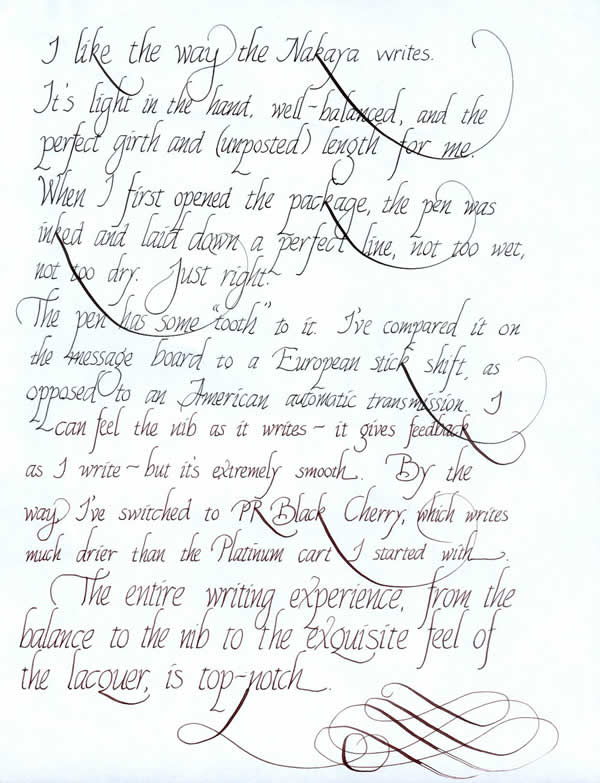 I like the way the Nakaya writes.
It's light in the hand, well-balanced, and the
perfect girth and (unposted) length for me.
When I first opened the package, the pen was
inked and laid down a perfect line, not too wet,
not too dry. Just right.
The pen has some "tooth" to it. I've compared it on
the message board to a European stick shift, as
opposed to an American automatic transmission. I
can feel the nib as it writes - it gives feedback
as I write - but it's extremely smooth. By the
way, I've switched to PR Black Cherry, which writes
much drier than the Platinum cart I started with.
The entire writing experience, from the
balance to the nib to the exquisite feel of
the lacquer, is top-notch.